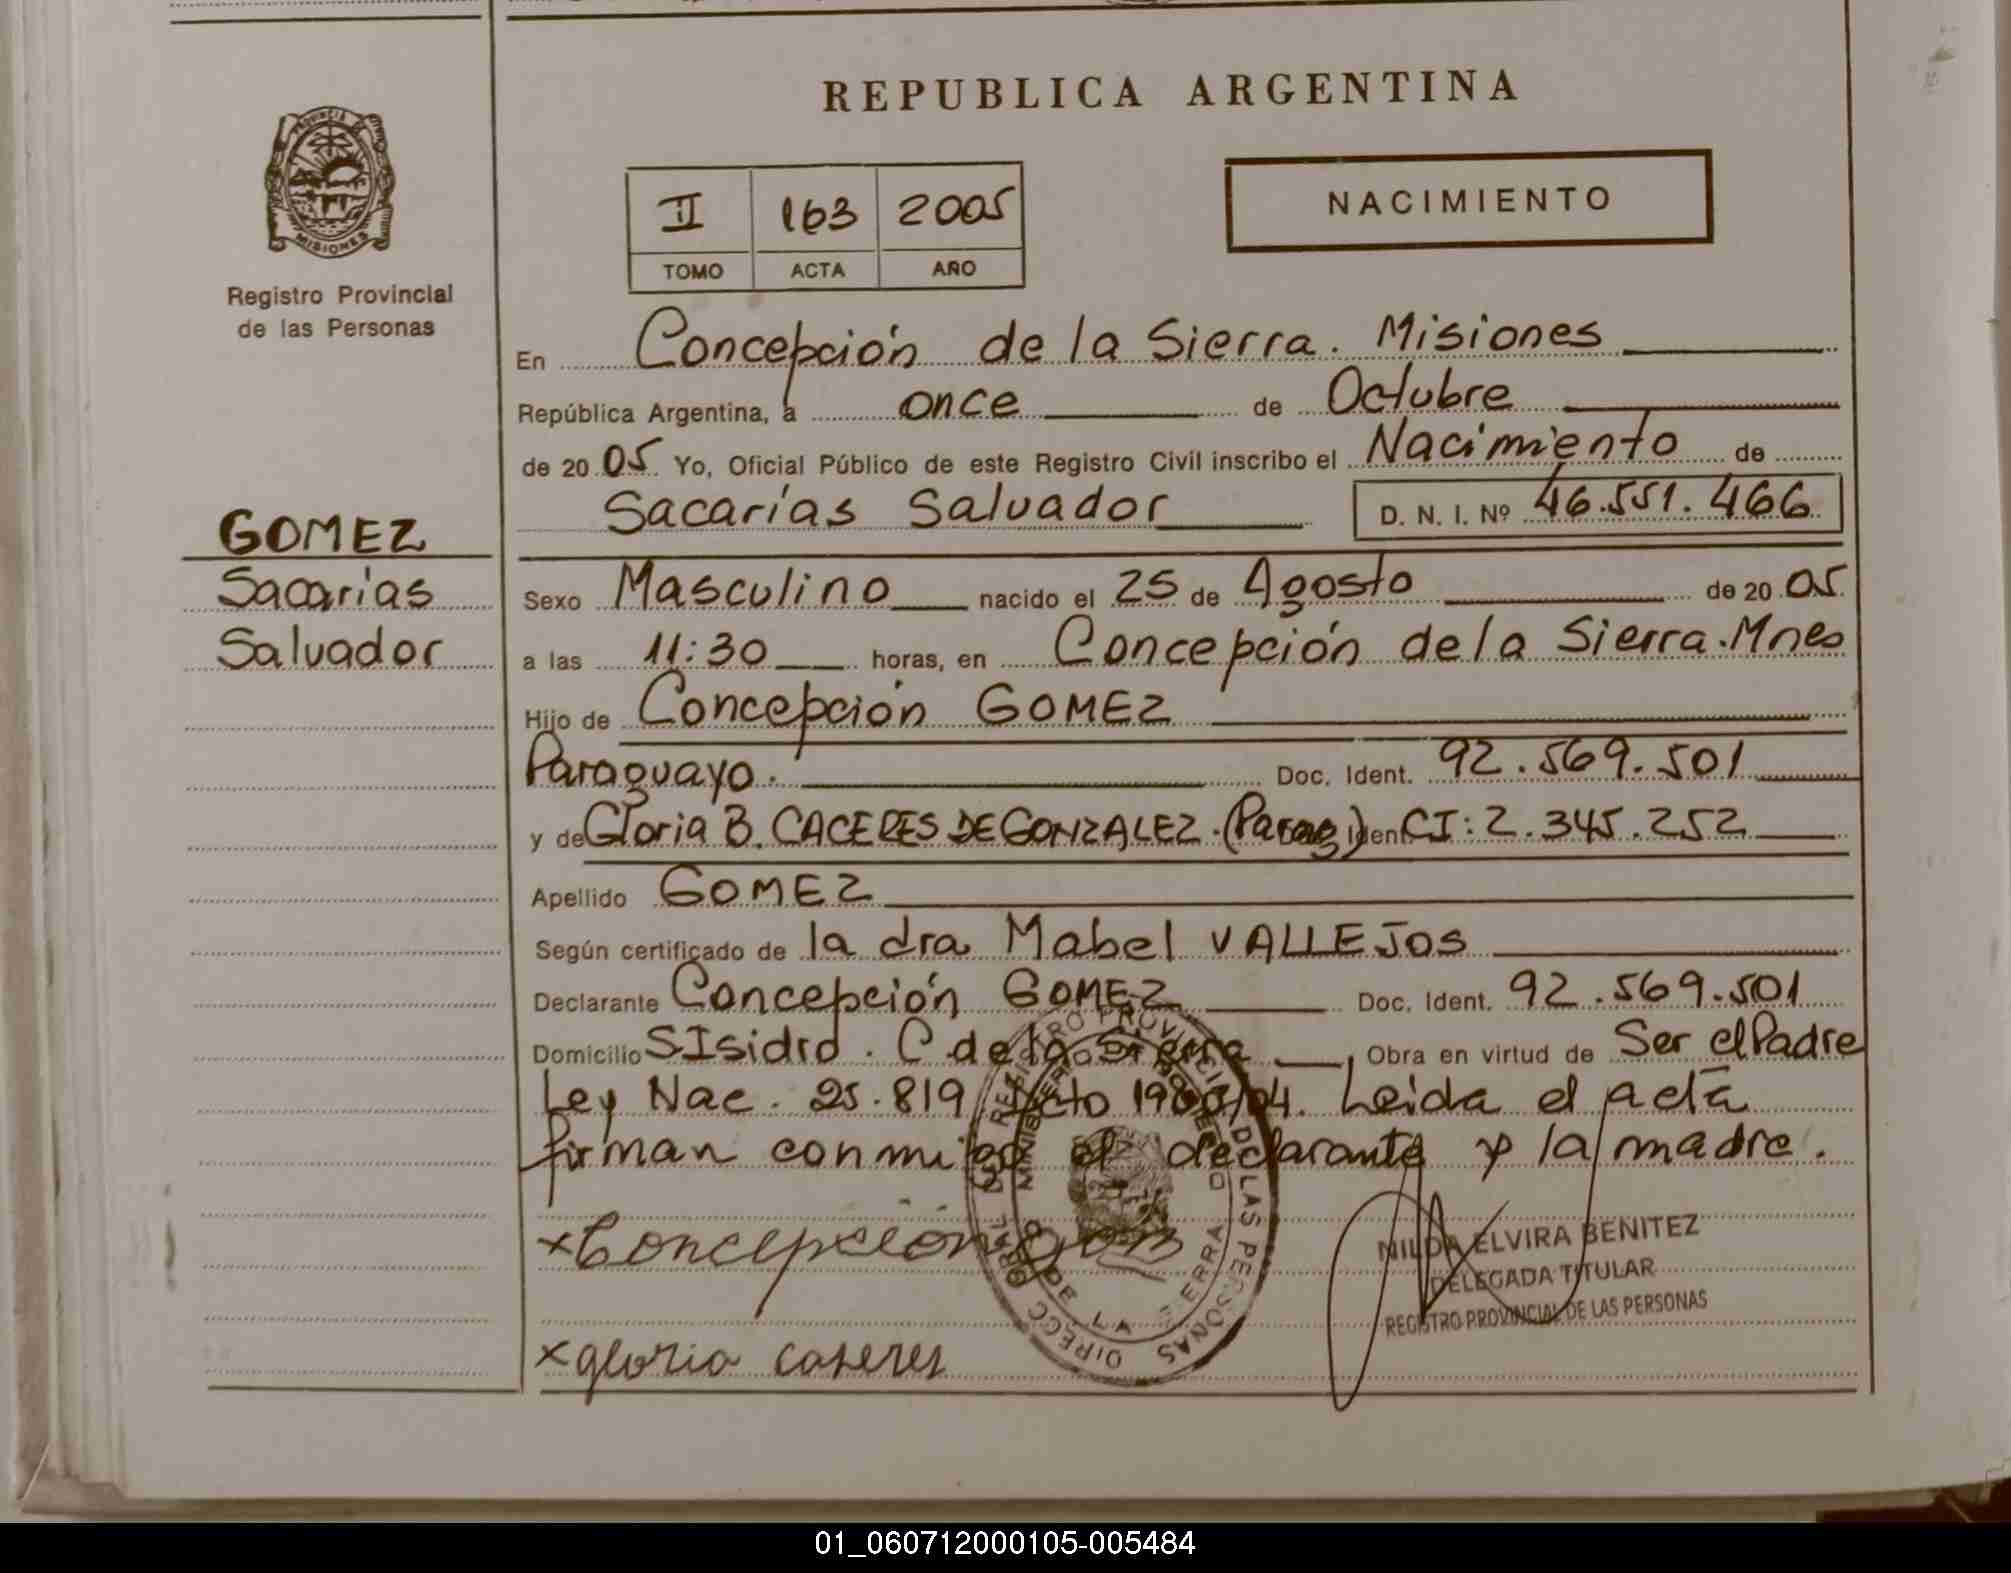 REPUBLICA ARGENTINA
PROVINCIA DE
MISIONES
Registro Provincial
de las Personas
II 163 2005
TOMO ACTA AÑO
NACIMIENTO
En Concepción de la Sierra. Misiones
República Argentina, a once de Octubre
de 2005 Yo, Oficial Público de este Registro Civil inscribo el Nacimiento de
Sacarías Salvador D. N. I. Nº 46.551.466
GOMEZ
Sacarías
Salvador
Sexo Masculino nacido el 25 de Agosto de 2005
a las 11:30 horas, en Concepción de la Sierra. Mnes
Hijo de Concepción GOMEZ
Paraguayo. Doc. Ident. 92.569.501
y de Gloria B. CACERES DE GONZALEZ. (Parag) Ident. CI: 2.345.252
Apellido GOMEZ
Según certificado de la dra Mabel VALLEJOS
Declarante Concepción GOMEZ Doc. Ident. 92.569.501
Domicilio S Isidro. C. de la Sierra, Obra en virtud de Ser el Padre
Ley Nac. 25.819 Dcto /04. Leida el acta
firman conmigo el declarante y la madre.
x Concepción Gom
x gloria caseres
NILDA ELVIRA BENITEZ
DELEGADA TITULAR
REGISTRO PROVINCIAL DE LAS PERSONAS
DIRECC GRAL DEL REGISTRO PROVINCIAL DE LAS PERSONAS
MINISTERIO DE GOBIERNO
DE LA SIERRA
01_060712000105-005484